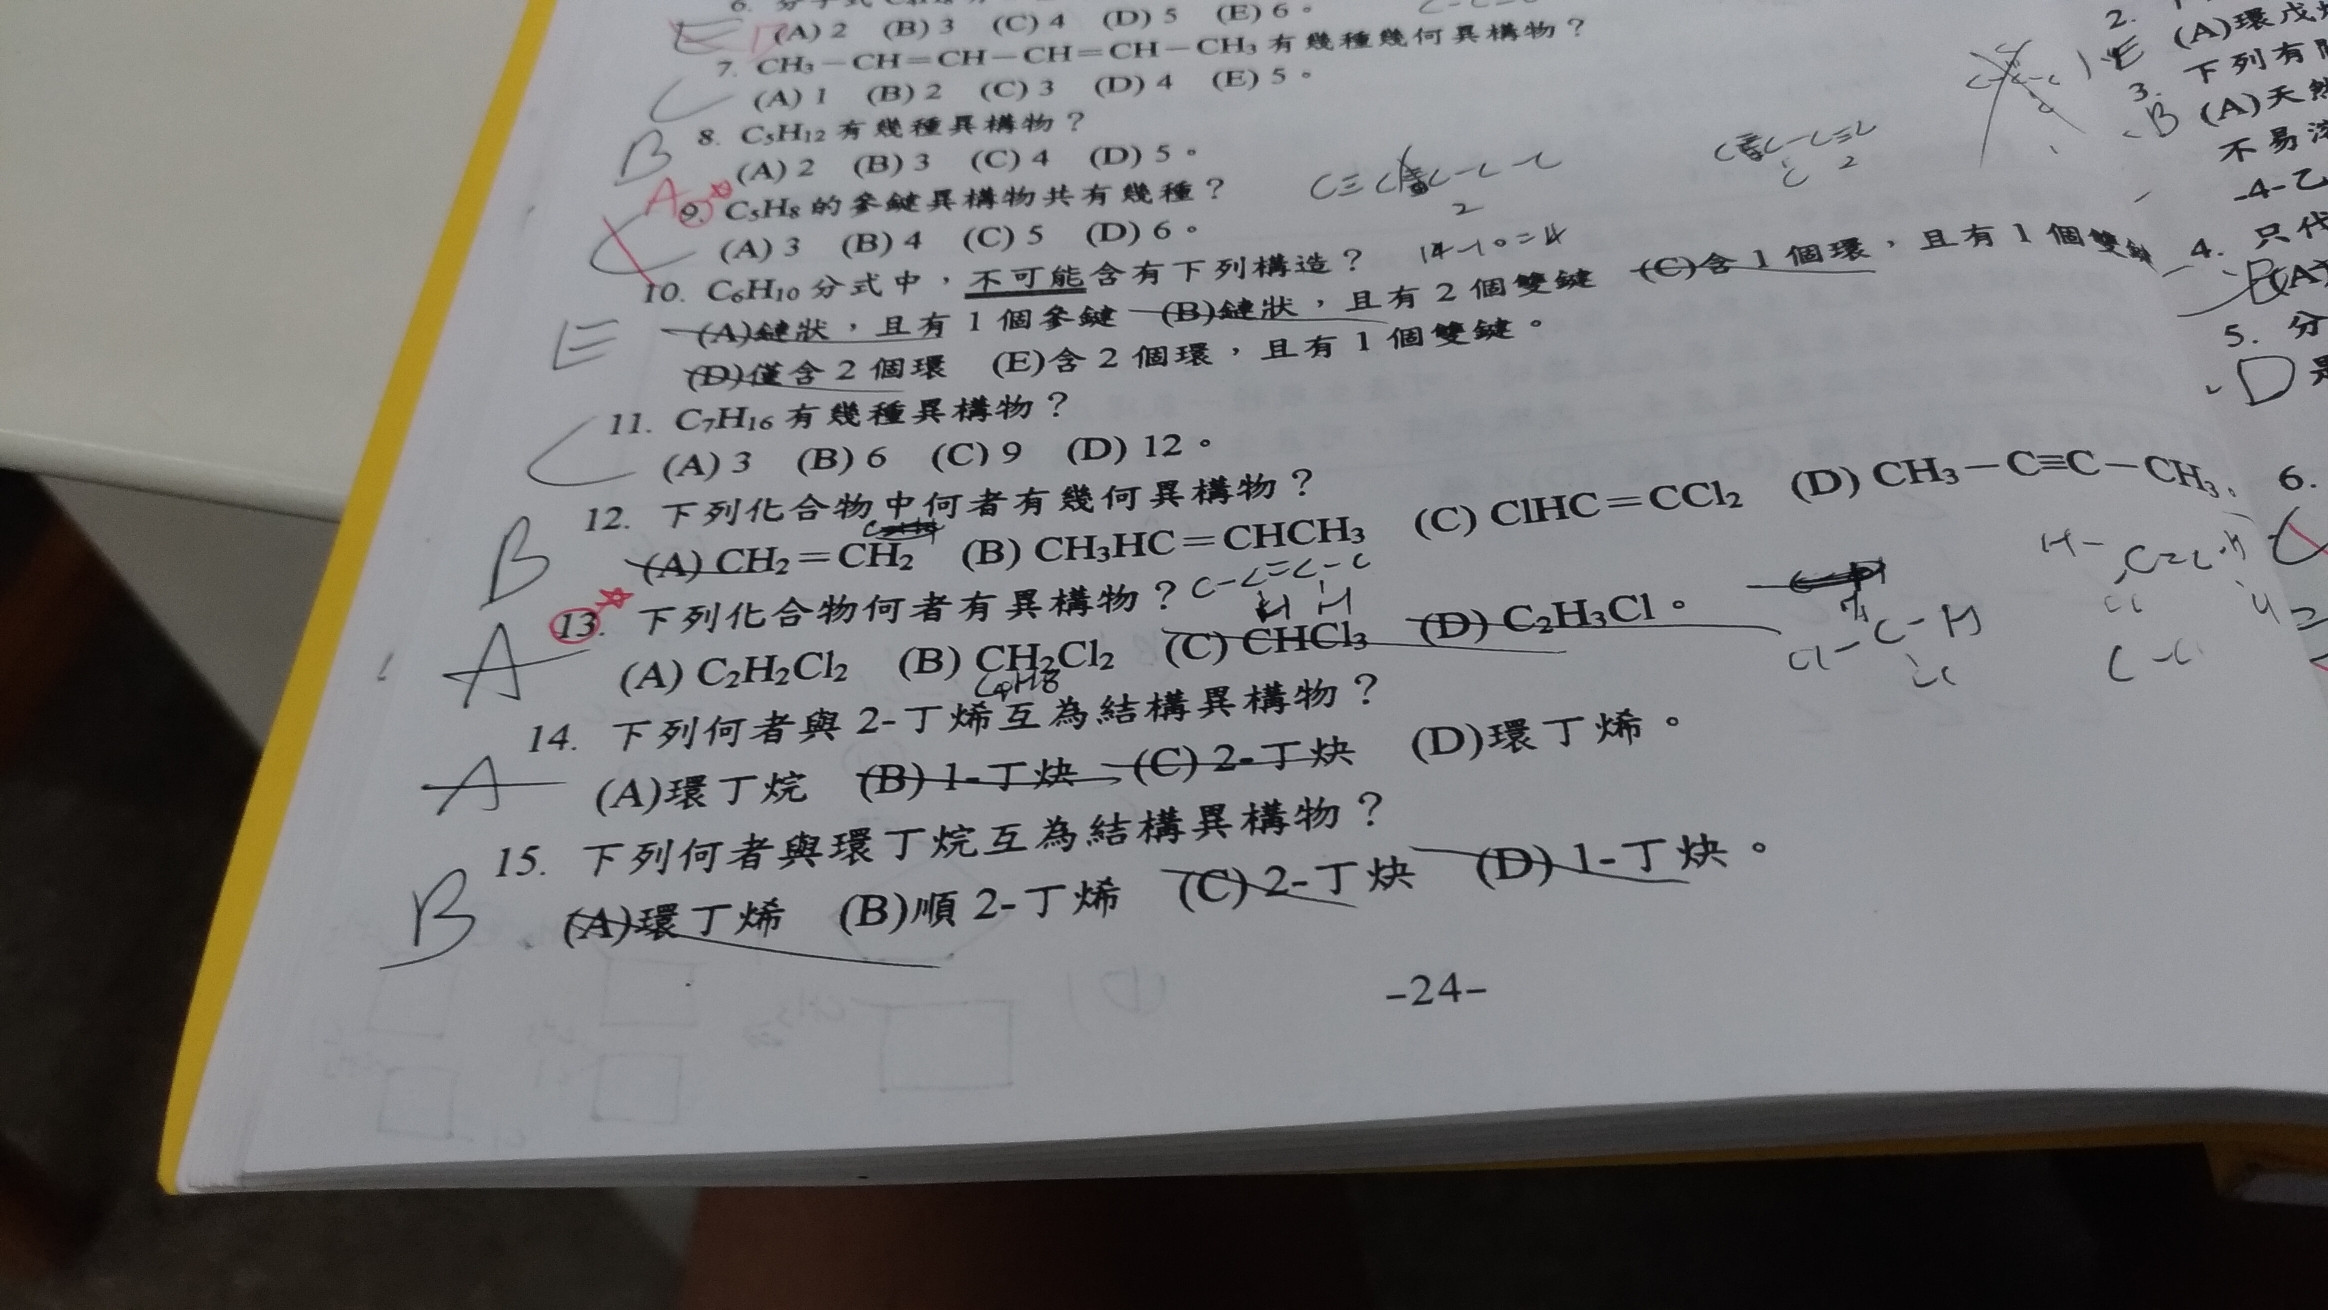 E D (A) 2 (B) 3 (C) 4 (D) 5 (E) 6。
7. CH₃－CH＝CH－CH＝CH－CH₃ 有幾種幾何異構物？
C (A) 1 (B) 2 (C) 3 (D) 4 (E) 5。
8. C₅H₁₂ 有幾種異構物？
B (A) 2 (B) 3 (C) 4 (D) 5。
A 9. C₅H₈ 的參鍵異構物共有幾種？
C (A) 3 (B) 4 (C) 5 (D) 6。
10. C₆H₁₀ 分式中，不可能含有下列構造？ 14-10=4
E (A)鏈狀，且有 1 個參鍵 (B)鏈狀，且有 2 個雙鍵 (C)含 1 個環，且有 1 個雙鍵
(D)僅含 2 個環 (E)含 2 個環，且有 1 個雙鍵。
11. C₇H₁₆ 有幾種異構物？
C (A) 3 (B) 6 (C) 9 (D) 12。
12. 下列化合物中何者有幾何異構物？
B (A) CH₂＝CH₂ (B) CH₃HC＝CHCH₃ (C) ClHC＝CCl₂ (D) CH₃－C≡C－CH₃。
C-C=C-C
H H
13. 下列化合物何者有異構物？
A (A) C₂H₂Cl₂ (B) CH₂Cl₂ (C) CHCl₃ (D) C₂H₃Cl。
C₄H₈
14. 下列何者與 2-丁烯互為結構異構物？
A (A)環丁烷 (B) 1-丁炔 (C) 2-丁炔 (D)環丁烯。
15. 下列何者與環丁烷互為結構異構物？
B (A)環丁烯 (B)順 2-丁烯 (C) 2-丁炔 (D) 1-丁炔。
-24-
2.
E (A)環戊
3. 下列有
B (A)天然
不易
-4-乙
4. 只代
B (A)
5. 分
D 是
6.